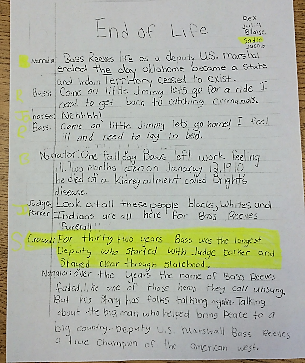 End of Life
Dex
Julia
Blaise
Sadie
Justin
Narrator: Bass Reeves life as a deputy U.S. Marshal
ended the day oklahoma became a state
and indian Territory ceased to exist.
Bass: Come on little Jimmy lets go for a ride I
need to get back to catching criminals.
horse: Neihhhh!
Bass: Come on little Jimmy lets go home! I feel
ill and need to lay in bed.
Narrator: One fall day Bass left work feeling
ill. Two months later on January 12, 1910
he died of a kidney ailment called brights
disease.
Judge Parker: Look at all these people blacks, whites and
Indians are all here for Bass Reeves
funeral!
Crowd: For thirty two years. Bass was the longest
Deputy who started with Judge Parker and
Stayed clear through statehood.
Narrator: Over the years the name of Bass Reeves
faded like one of those hero they call unsung.
But his story has folks talking again. Talking
about the big man who helped bring peace to a
big country. Deputy U.S. Marshall Bass Reeves
a True Champion of the american west.